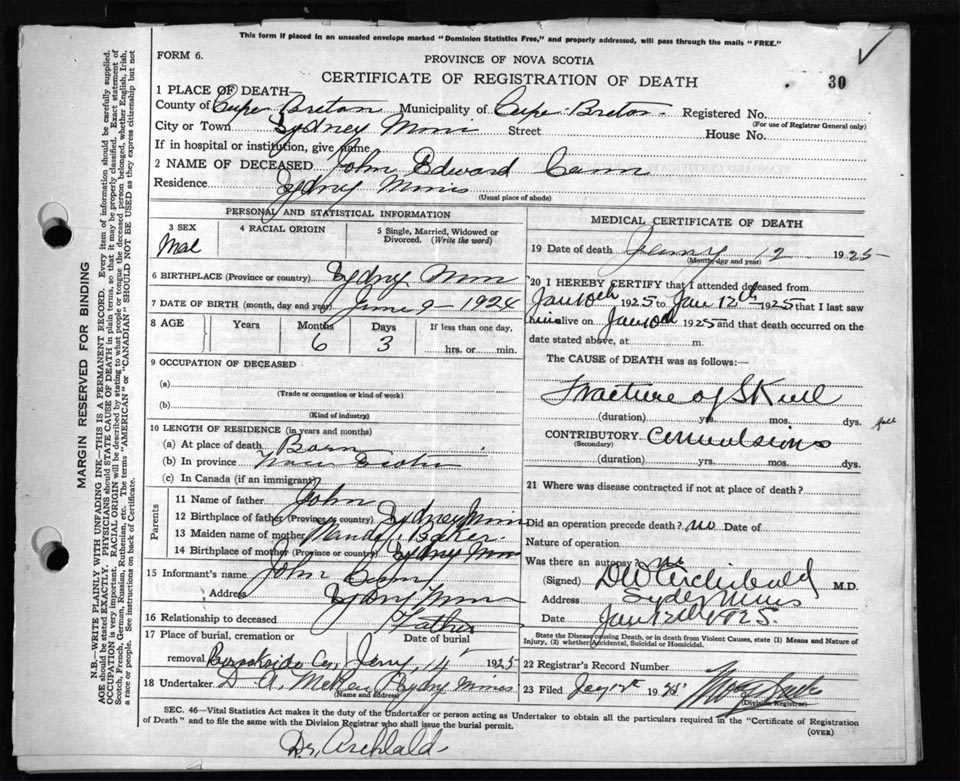 This form if placed in an unsealed envelope marked "Dominion Statistics Free," and properly addressed, will pass through the mails "FREE."
FORM 6.
PROVINCE OF NOVA SCOTIA
CERTIFICATE OF REGISTRATION OF DEATH
30
1 PLACE OF DEATH
County of Cape Breton Municipality of Cape Breton Registered No.
(For use of Registrar General only)
City or Town Sydney Mines Street House No.
If in hospital or institution, give name
2 NAME OF DECEASED John Edward Cann
Residence Sydney Mines
(Usual place of abode)
PERSONAL AND STATISTICAL INFORMATION
3 SEX 4 RACIAL ORIGIN 5 Single, Married, Widowed or Divorced. (Write the word)
Mal
6 BIRTHPLACE (Province or country) Sydney Mines
7 DATE OF BIRTH (month, day and year) June 9 - 1924
8 AGE Years Months Days If less than one day,
6 3 hrs. or min.
9 OCCUPATION OF DECEASED
(a)
(Trade or occupation or kind of work)
(b)
(Kind of industry)
10 LENGTH OF RESIDENCE (in years and months)
(a) At place of death Born
(b) In province Nova Scotia
(c) In Canada (if an immigrant)
Parents
11 Name of father John
12 Birthplace of father (Province or country) Sydney Mines
13 Maiden name of mother Baker
14 Birthplace of mother (Province or country) Sydney Mines
15 Informant's name John Cann
Address Sydney Mines
16 Relationship to deceased Father
17 Place of burial, cremation or removal Brookside Cem Date of burial Jany 14 1925
18 Undertaker D A. Sydney Mines
(Name and address)
MEDICAL CERTIFICATE OF DEATH
19 Date of death January 12 1925
(Month, day and year)
20 I HEREBY CERTIFY that I attended deceased from
Jan 10th 1925 to Jan 12th 1925 that I last saw
him alive on Jan 10th 1925 and that death occurred on the
date stated above, at m.
The CAUSE of DEATH was as follows:—
Fracture of Skull
(duration) yrs. mos. dys. fall
CONTRIBUTORY convulsions
(Secondary)
(duration) yrs. mos. dys.
21 Where was disease contracted if not at place of death?
Did an operation precede death? no Date of
Nature of operation
Was there an autopsy? no
(Signed) D W Archibald M.D.
Address Sydney Mines
Date Jan 12th 1925.
State the Disease causing Death, or in death from Violent Causes, state (1) Means and Nature of Injury, (2) whether Accidental, Suicidal or Homicidal.
22 Registrar's Record Number
23 Filed 1925
(Division Registrar)
SEC. 46—Vital Statistics Act makes it the duty of the Undertaker or person acting as Undertaker to obtain all the particulars required in the "Certificate of Registration
of Death" and to file the same with the Division Registrar who shall issue the burial permit.
(OVER)
Dr. Archibald
MARGIN RESERVED FOR BINDING
N.B.—WRITE PLAINLY WITH UNFADING INK—THIS IS A PERMANENT RECORD. Every item of information should be carefully supplied.
AGE should be stated EXACTLY. PHYSICIANS should STATE CAUSE OF DEATH in plain terms, so that it may be properly classified. Exact statement of
OCCUPATION is very important. RACIAL ORIGIN will be described by stating to what people or tongue the deceased person belonged, whether English, Irish,
Scotch, French, German, Russian, Ruthenian, etc. The terms "AMERICAN" or "CANADIAN" SHOULD NOT BE USED as they express citizenship but not
a race or people. See instructions on back of Certificate.